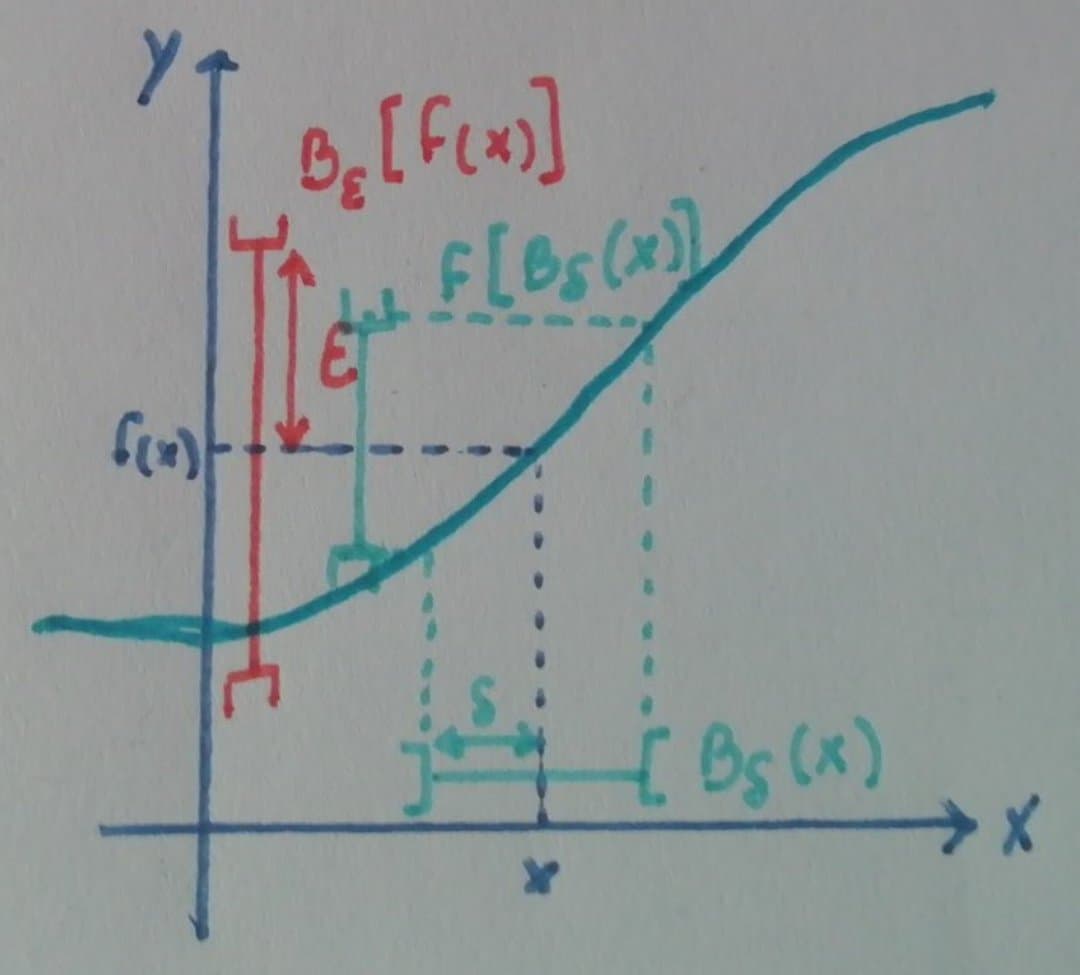 Y
Bε[f(x)]
f[Bδ(x)]
ε
f(x)
δ
Bδ(x)
X
x